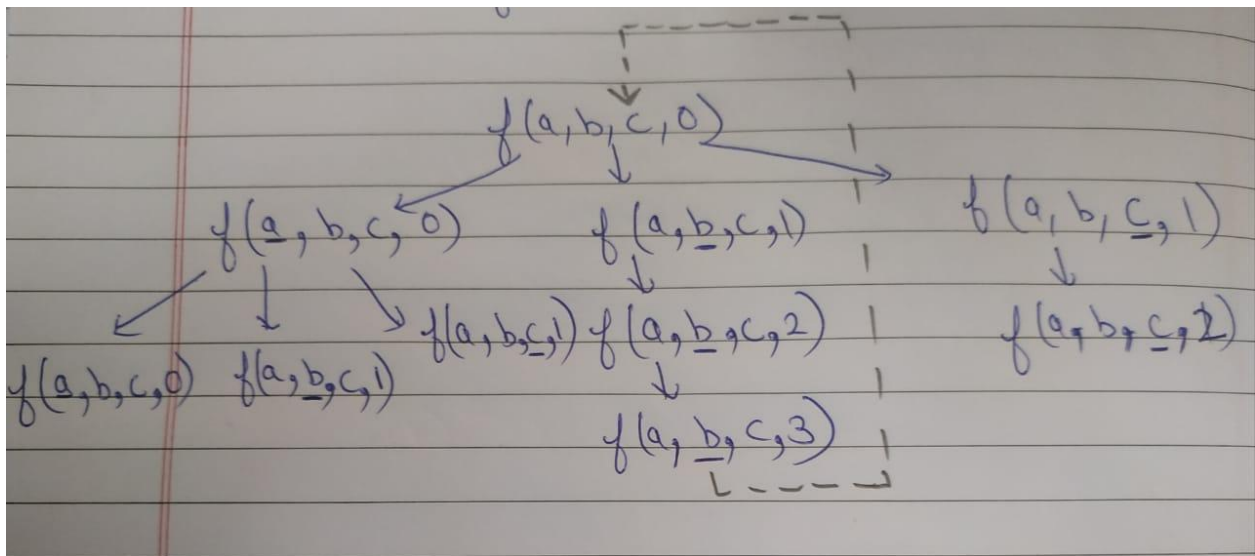 f(a,b,c,0)
f(a,b,c,0) f(a,b,c,1) f(a,b,c,1)
f(a,b,c,1) f(a,b,c,2) f(a,b,c,2)
f(a,b,c,0) f(a,b,c,1)
f(a,b,c,3)